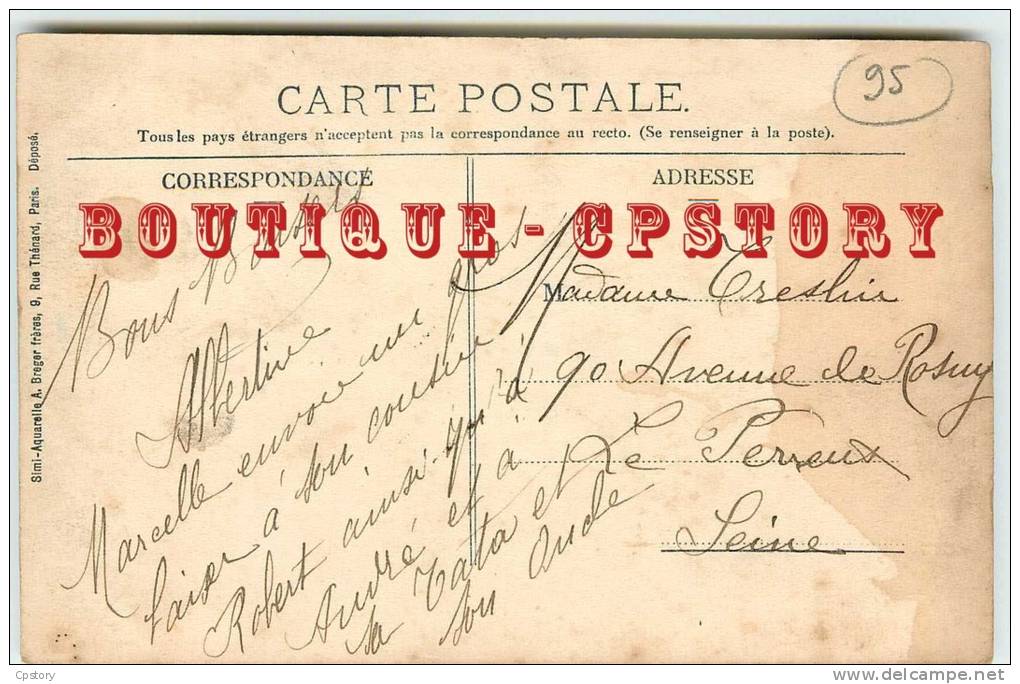 95
CARTE POSTALE.
Tous les pays étrangers n'acceptent pas la correspondance au recto. (Se renseigner à la poste).
CORRESPONDANCE
ADRESSE
BOUTIQUE - CPSTORY
Simi-Aquarelle A. Breger frères, 9, Rue Thénard, Paris. Déposé.
Bons Baisers
Albertine
Marcelle envoie un gros
baiser à son cousin
Robert ainsi qu'à
André et à
sa Tata et
son Oncle
Madame
90 Avenue de Rosny
Le Perreux
Seine
Cpstory
www.delcampe.net